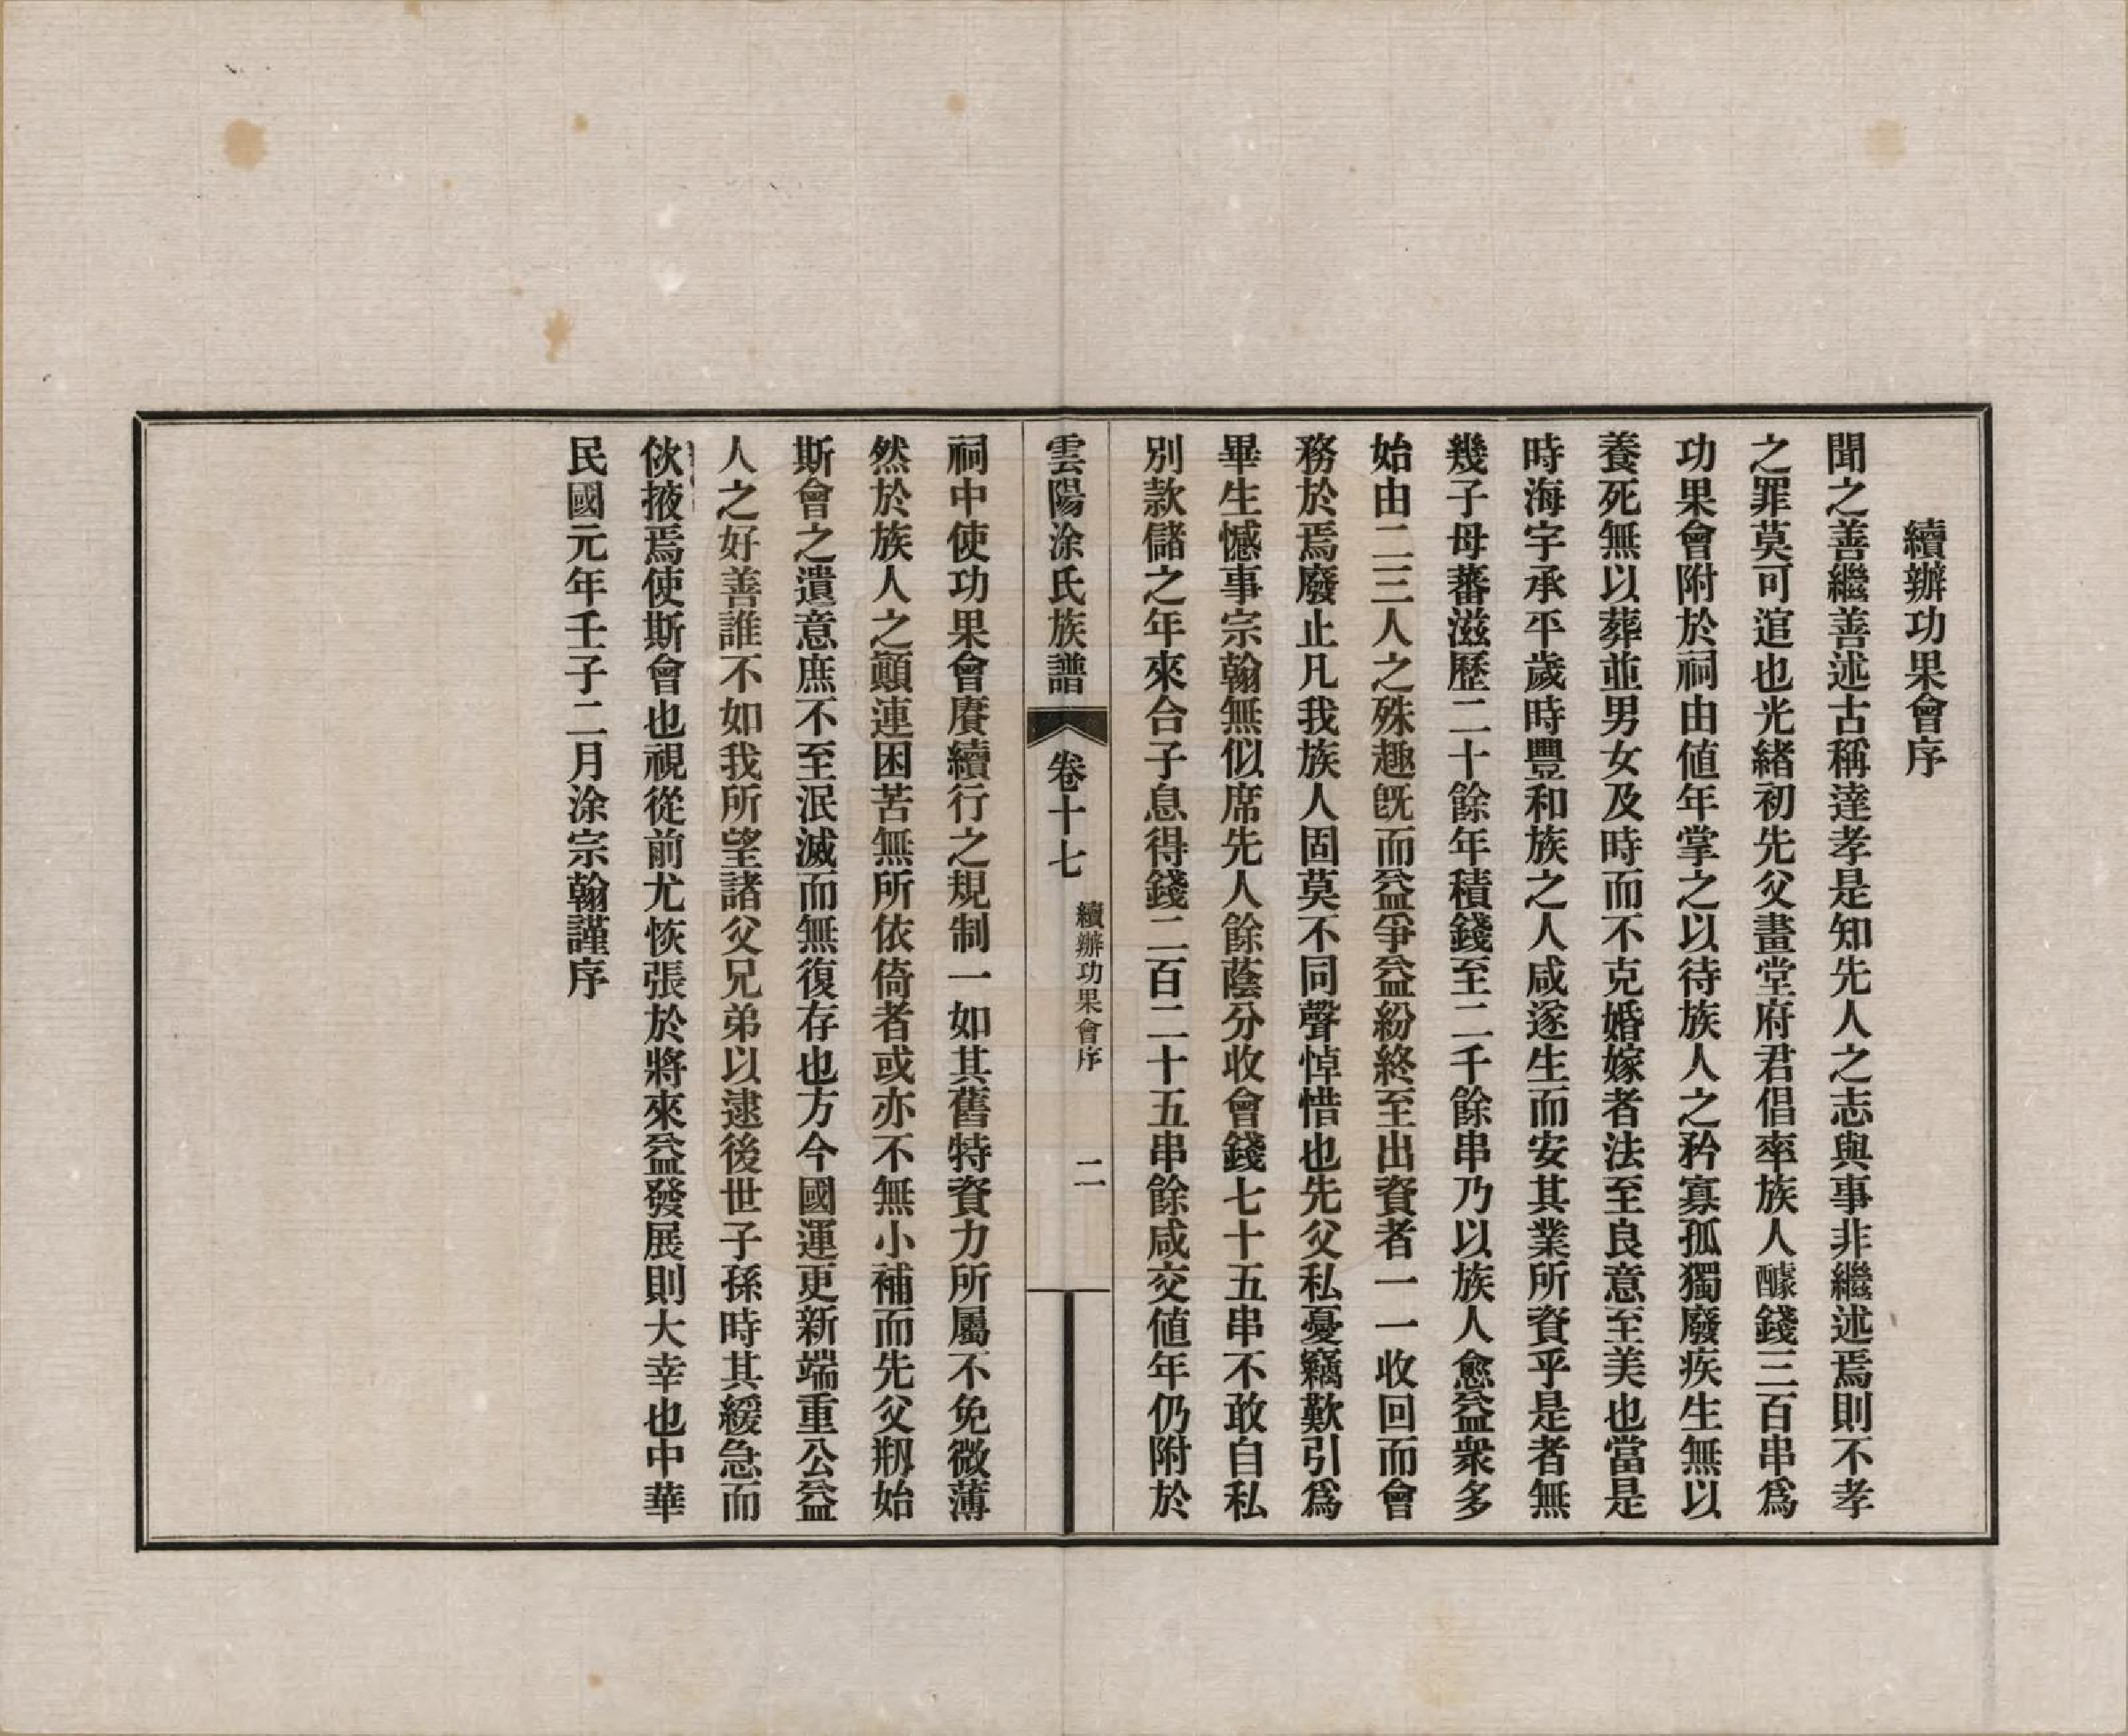 續辦功果會序
聞之善繼善述古稱達孝是知先人之志與事非繼述焉則不孝
之罪莫可逭也光緒初先父畫堂府君倡率族人醵錢三百串爲
功果會附於祠由値年掌之以待族人之矜寡孤獨廢疾生無以
養死無以葬並男女及時而不克婚嫁者法至良意至美也當是
時海宇承平歲時豐和族之人咸遂生而安其業所資乎是者無
幾子母蕃滋歷二十餘年積錢至二千餘串乃以族人愈益衆多
始由二三人之殊趣旣而益爭益紛終至出資者一一收回而會
務於焉廢止凡我族人固莫不同聲悼惜也先父私憂竊歎引爲
畢生憾事宗翰無似席先人餘蔭分收會錢七十五串不敢自私
別款儲之年來合子息得錢二百二十五串餘咸交値年仍附於
雲陽涂氏族譜 卷十七 續辦功果會序 二
祠中使功果會賡續行之規制一如其舊特資力所屬不免微薄
然於族人之顚連困苦無所依倚者或亦不無小補而先父剏始
斯會之遺意庶不至泯滅而無復存也方今國運更新端重公益
人之好善誰不如我所望諸父兄弟以逮後世子孫時其緩急而
佽掖焉使斯會也視從前尤恢張於將來益發展則大幸也中華
民國元年壬子二月涂宗翰謹序